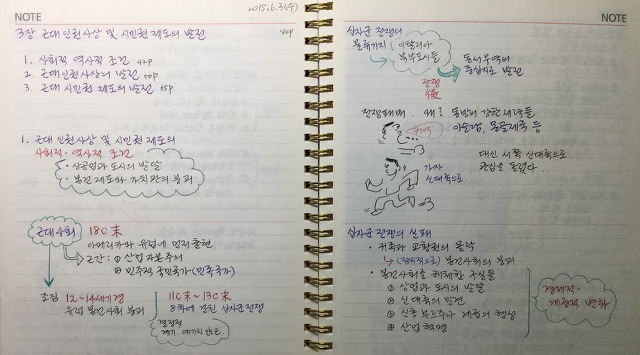 NOTE
2015.6.3(수)
3장 근대 인권사상 및 시민권 제도의 발전
42p
1. 사회적 역사적 조건 42p
2. 근대 인권사상의 발전 50p
3. 근대 시민권 제도의 발전 55p
1. 근대 인권사상 및 시민권 제도의
사회적·역사적 조건
· 상공업과 도시의 발달
· 봉건 제도와 가치관의 붕괴
근대사회
18C 末
아메리카와 유럽에 먼저 출현
근간: ① 산업 자본주의
② 민주적 국민국가 (민족국가)
조건
12~14세기경
유럽 봉건사회 붕괴
11C末~13C末
8차에 걸친 십자군 전쟁
결정적
계기
NOTE
십자군 전쟁의
물류기지
이탈리아
북부도시들
동서 무역의
중심지로 발전
전쟁
後
전쟁패배. 왜? 동방의 강한 세력들
이슬람, 몽골제국 등
가자
신대륙으로
대신 서쪽 신대륙으로
관심을 돌렸다.
십자군 전쟁의 실패
· 귀족과 교황권의 몰락
(정치적으로) 봉건사회의 붕괴
· 봉건사회를 해체한 구실들
① 상업과 도시의 발달
② 신대륙의 발견
③ 신흥 부르주아 계급의 형성
④ 산업혁명
경제적·
계급적 변화